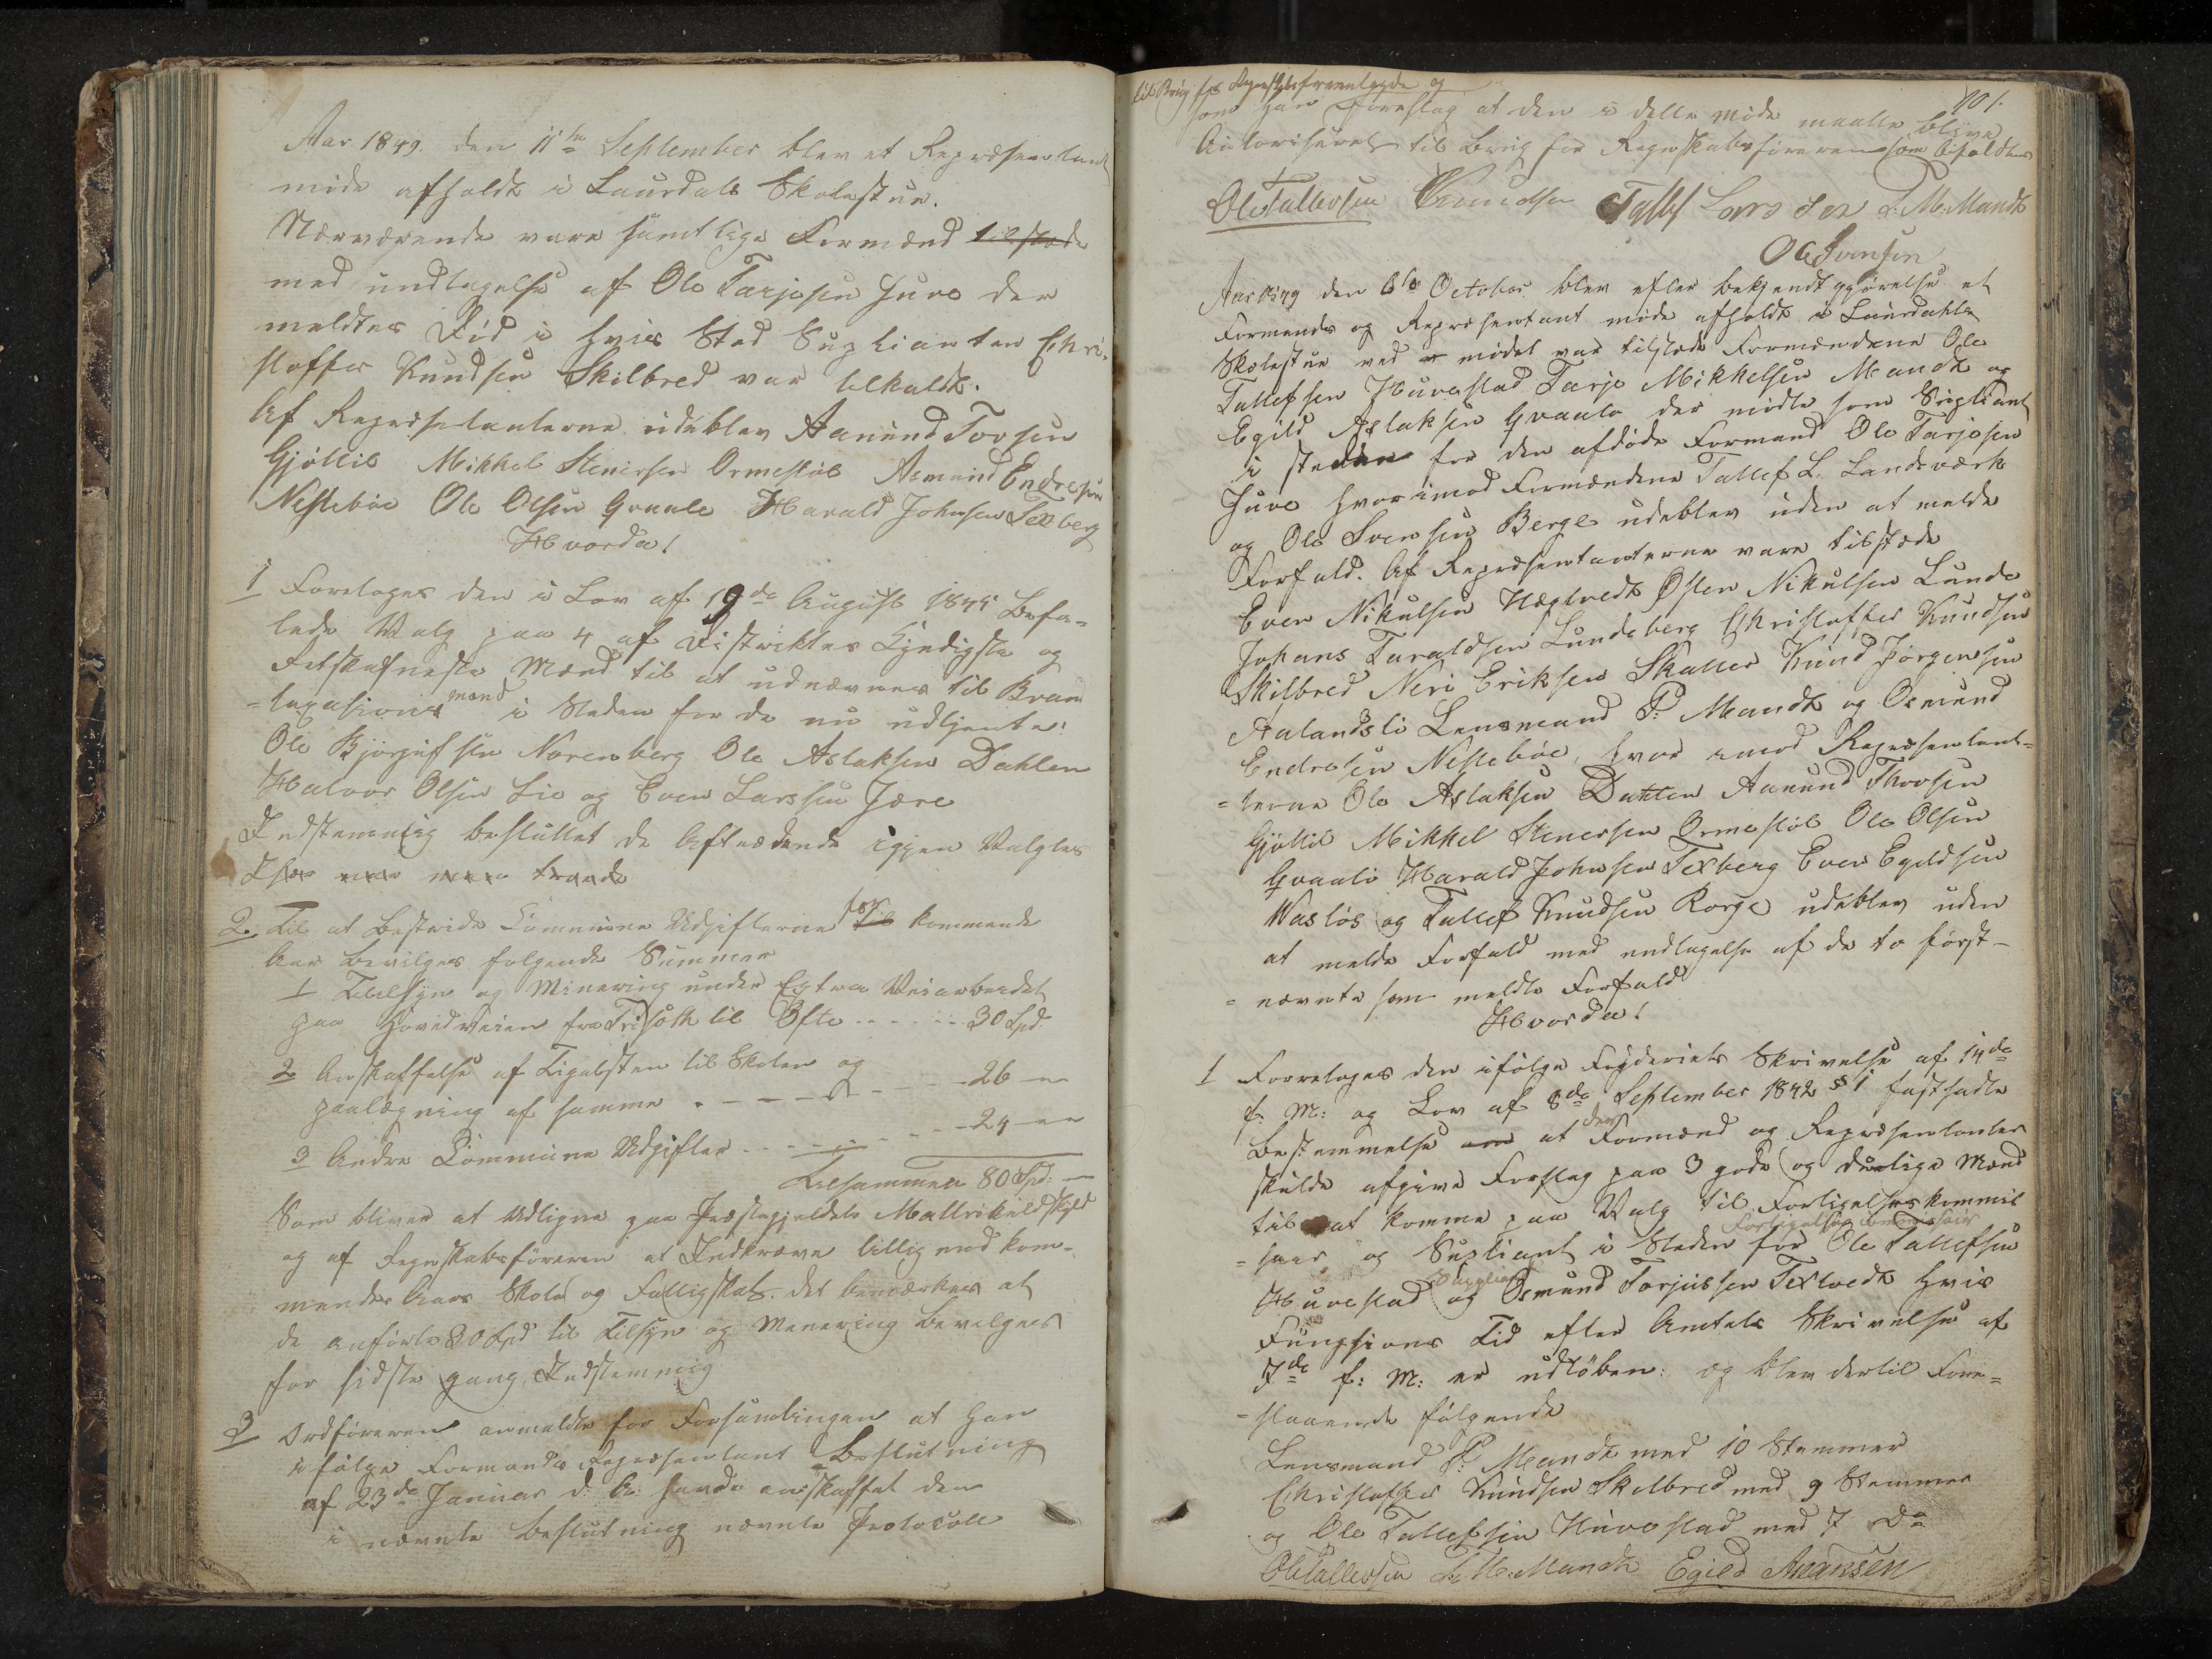 Aar 1849. den 11te September blev et Repræsentant
møde afholdt i Laurdals Skolestue.
Nærværende vare samtlige Formænd tilstede
med undtagelse af Ole Tarjesen Juve der
meldtes Död i hvis Sted Suplianten Chri-
stoffer Knudsen Skilbred var tilkaldt.
Af Repræsentanterne udeblev Aanund Tovsen
Gjöllil Mikkel Stenersen Ormestöl Asmund Endresen
Nesteböe Ole Olsen Qvaale Harald Johnsen Texberg
Hvorda!
1 Foretoges den i Lov af 19de August 1845 Befa-
lede Valg paa 4 af Districtets Kyndigste og
Retskafneste Mænd til at udnævnes til Brand
-taxasions mænd i Steden for de nu udtjente:
Ole Bjørgufsen Norenberg Ole Aslaksen Dahlen
Halvor Olsen Lie og Even Larssen Jore
Indstemmig besluttet de Aftrædende igjen Valgtes
2. Til at Bestride Commune Udgifterne til for kommende
Aar Bevilges følgende Summer
1 Tilsyn og Minering under Extra Veiarbeidet
paa Hovedveien fra Trisæth til Ofte - - - - - 30 Spd.
2 Anskaffelse af Tigelsten til Skolen og
paalægning af samme - - - - - - - 26 —
3 Andre Commune Udgifter - - - - - - - 24 —
Tilsammen 80 Spd: —
Som bliver at Udligne paa Præstegjeldets Mattrikuldskyld
og af Regnskabsföreren at Indkræve tillig med kom-
mende Aars Skole og Fattigskat. det bemærkes at
de anførte 30 Spd til Tilsyn og Menering bevilges
for sidste gang Indstemmig
3 Ordføreren anmeldte for Forsamlingen at han
ifølge Formands Repræsentant Beslutning
af 23de Januar d: A: havde anskaffet den
i nævnte beslutning nævnte Protocoll
til Brug for Regnskabs fremlagde og
101.
som han foreslog at den i dette møde maatte blive
Autoriseret til brug for Regnskabsføreren som bifaldtes
Ole Tallevsen Knudsen Tallef Larssen T. M. Mandt
Ole Svensen
Aar 1849 den 6te October blev efter bekjendtgjørelse et
Formands og Repræsentant møde afholdt i Laurdahls
Skolestue ved mødet var tilstede Formændene Ole
Tallefsen Huvestad Tarje Mikkelsen Mandt og
Egild Aslaksen Qvaale der mødte som Supliant
i steden for den afdöde Formand Ole Tarjesen
Juve hvorimod Formændene Tallef L. Landsværk
og Ole Svensen Berge udeblev uden at melde
Forfald. Af Repræsentanterne vare tilstede
Even Nikulsen Hægtvedt Østen Nikulsen Lunde
Johans Taraldsen Lundeberg Christoffer Knudsen
Skilbred Neri Eriksen Skatter Knud Jørgensen
Aalandsli Lensmand P: Mandt og Osmund
Endresen Nestebøe, hvor imod Repræsentant-
=terne Ole Aslaksen Dahlen Aanund Thovsen
Gjöllil Mikkel Stenersen Ormestöl Ole Olsen
Qvaale Harald Johnsen Texberg Even Egeldsen
Waslös og Tallef Knudsen Rorge udeblev uden
at melde Forfald med undtagelse af de to först-
=nævnte som meldte Forfald
Hvorda!
1 Forretoges den ifølge Fogderiets Skrivelse af 14de
f: M: og Lov af 8de September 1842 § 1 fastsatte
Bestemmelse at der Formænd og Repræsentanter
skulde afgive Forslag paa 3 gode og duelige Mænd
til at komme paa Valg til Forligelseskommis
=sair og Supliant i Steden for Forligelses Commissair Ole Tallefsen
Huvestad og Supplia Osmund Torjussen Textvedt hvis
Funcsions Tid efter Amtets Skrivelse af
7de f: M: er udløben: og blev dertil Fore=
=slaaende følgende
Lensmand P: Mandt med 10 Stemmer
Christoffer Knudsen Skilbred med 9 Stemmer
og Ole Tallefsen Huvestad med 7 Do
Ole Tallevsen T. M. Mandt Egild